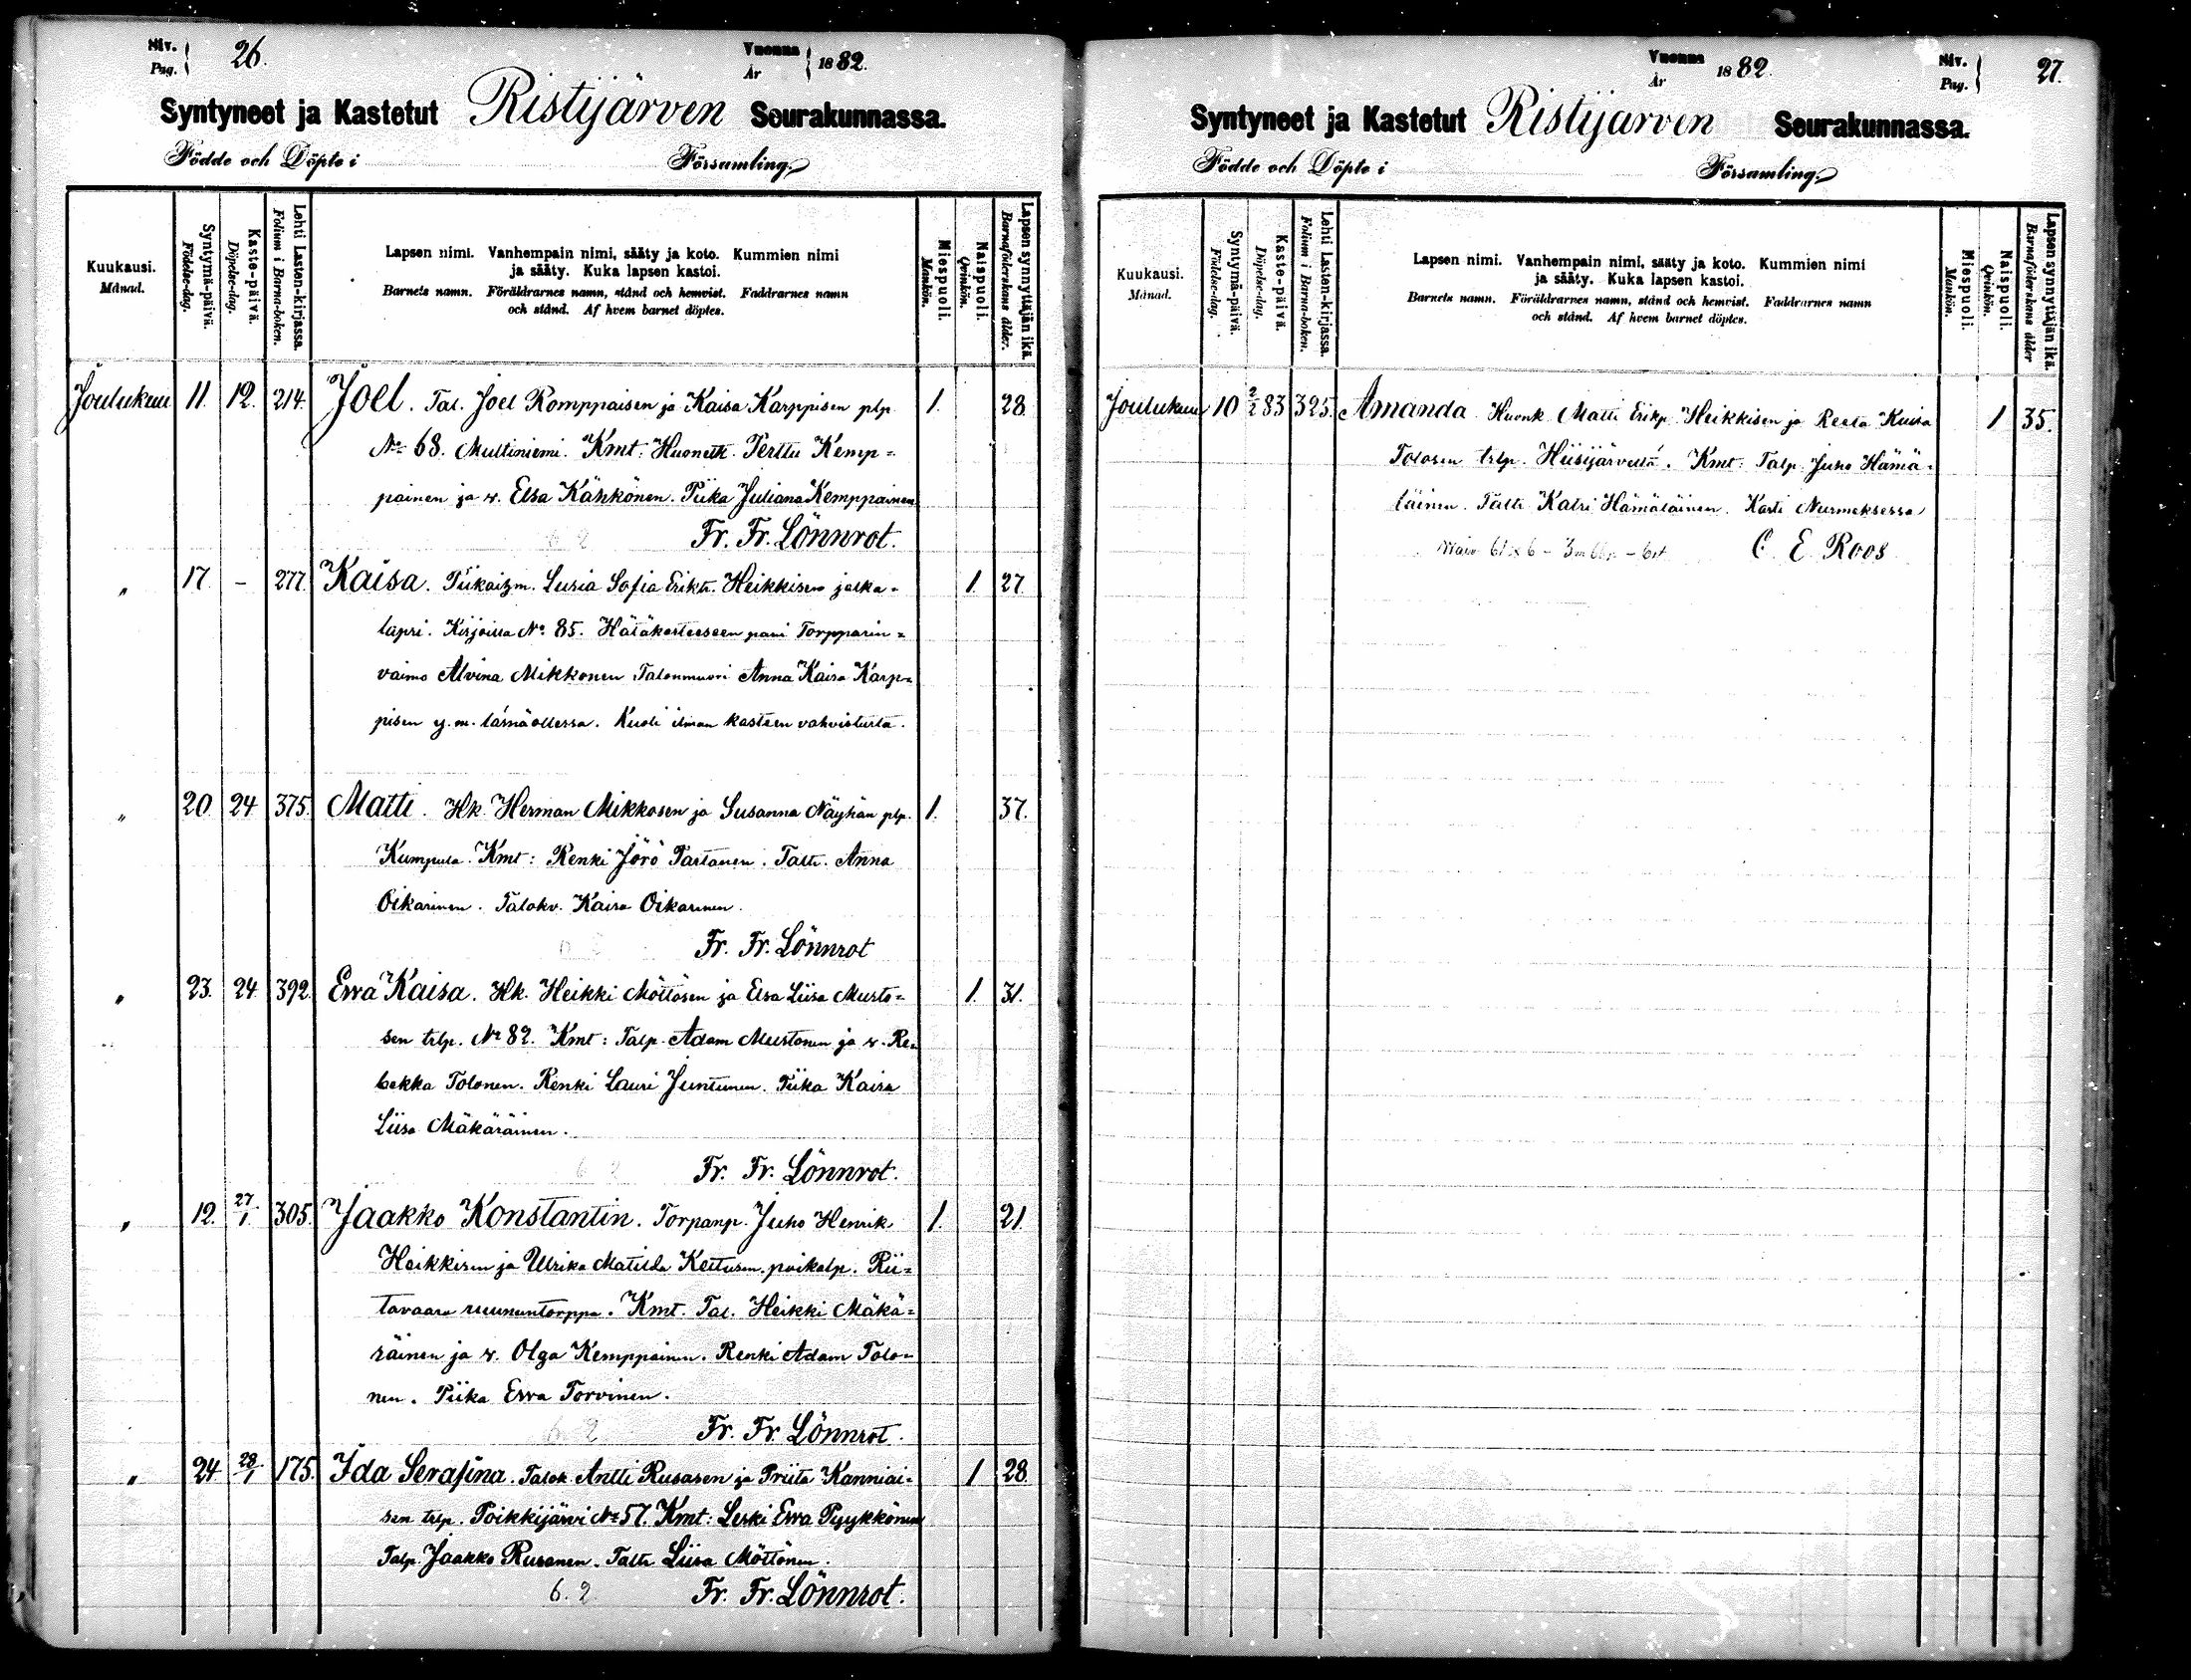 Siv. Pag. 26. Vuonna År 1882.
Syntyneet ja Kastetut Ristijärven Seurakunnassa.
Födde och Döpte i Församling.
Kuukausi. Månad.
Syntymä-päivä. Födelse-dag.
Kaste-päivä. Döpelse-dag.
Lehti Lasten-kirjassa. Folium i Barna-boken.
Lapsen nimi. Vanhempain nimi, sääty ja koto. Kummien nimi
ja sääty. Kuka lapsen kastoi.
Barnets namn. Föräldrarnes namn, stånd och hemvist. Faddrarnes namn
och stånd. Af hvem barnet döptes.
Miespuoli. Mankön.
Naispuoli. Qvinkön.
Lapsen synnyttäjän ikä. Barnaföderskans ålder.
Joulukuu 11. 12. 214. Joel. Tal. Joel Romppaisen ja Kaisa Karppisen plp. 1. 28
No 68. Multiniemi. Kmt: Huonetk. Perttu Kemp=
painen ja v. Elsa Kähkönen. Piika Juliana Kemppainen
6 2 Fr. Fr. Lönnrot.
" 17. - 277. Kaisa. Piikaizm. Luisia Sofia Erikt. Heikkisen jalka=
lapsi. Kirjoissa No 85. Hätäkasteeseen pani Torpparin=
vaimo Alvina Mikkonen Talonmuori Anna Kaisa Karp=
pisen y. m. läsnäollessa. Kuoli ilman kasteen vahvistusta.
1. 27.
" 20. 24 375. Matti. Hk. Herman Mikkosen ja Susanna Näyhän plp. 1. 37.
Kumpula. Kmt: Renki Jörö Partanen. Taltr. Anna
Oikarinen. Talokv. Kaisa Oikarinen.
Fr. Fr. Lönnrot
" 23. 24 392. Ewa Kaisa. Hk. Heikki Möttösen ja Elsa Liisa Musto= 1. 31.
sen trlp. No 82. Kmt: Talp. Adam Mustonen ja v. Re=
bekka Tolonen. Renki Lauri Juntunen. Piika Kaisa
Liisa Mäkäräinen.
6 2 Fr. Fr. Lönnrot.
" 12. 27/1 305. Jaakko Konstantin. Torpanp. Juho Henrik 1. 21.
Heikkisen ja Ulrika Matilda Kettusen poikalp. Rii=
tavaara ruununtorppa. Kmt. Tal. Heikki Mäkä=
räinen ja v. Olga Kemppainen. Renki Adam Tolo=
nen. Piika Ewa Torvinen.
6. 2 Fr. Fr. Lönnrot.
" 24 28/1 175. Ida Serafina. Talok. Antti Rusasen ja Priita Kanniai= 1 28.
sen trlp. Poikkijärvi No 57. Kmt: Leski Ewa Pyykkönen
Talp. Jaakko Rusanen. Taltr Liisa Möttönen.
6. 2 Fr. Fr. Lönnrot.
Vuonna År 1882. Siv. Pag. 27.
Syntyneet ja Kastetut Ristijärven Seurakunnassa.
Födde och Döpte i Församling.
Kuukausi. Månad.
Syntymä-päivä. Födelse-dag.
Kaste-päivä. Döpelse-dag.
Lehti Lasten-kirjassa. Folium i Barna-boken.
Lapsen nimi. Vanhempain nimi, sääty ja koto. Kummien nimi
ja sääty. Kuka lapsen kastoi.
Barnets namn. Föräldrarnes namn, stånd och hemvist. Faddrarnes namn
och stånd. Af hvem barnet döptes.
Miespuoli. Mankön.
Naispuoli. Qvinkön.
Lapsen synnyttäjän ikä. Barnaföderskans ålder
Joulukuu 10 2/2 83 325. Amanda. Huonk. Matti Erikp. Heikkisen ja Reeta Kaisa 1 35.
Tolosen trlp. Hiisijärveltä. Kmt: Talp. Juho Hämä=
läinen. Taltr Katri Hämäläinen. Kasti Nurmeksessa
C. E. Roos